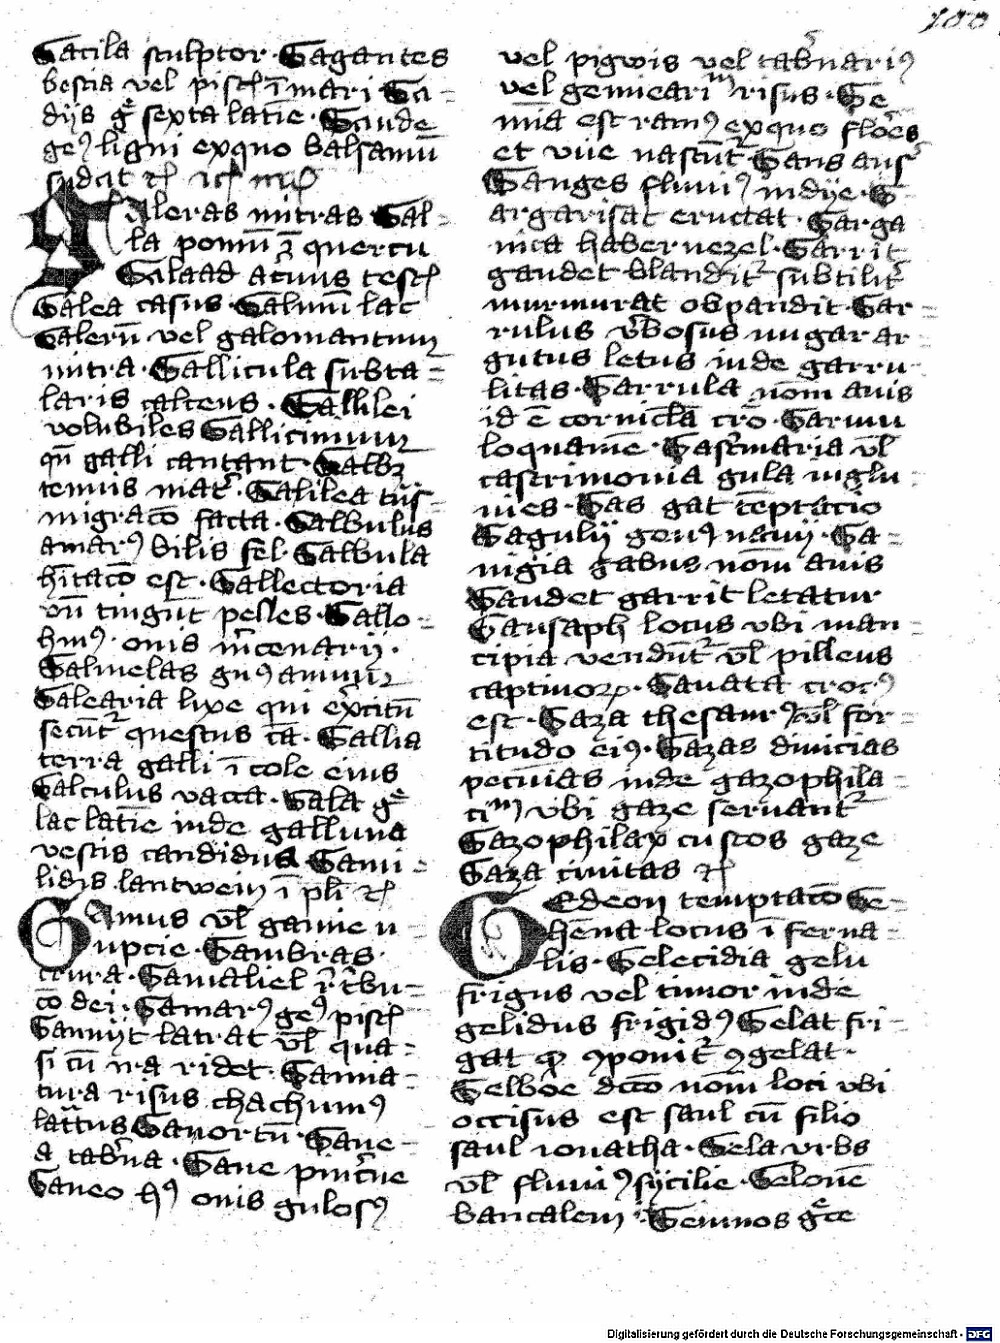 180
Gacila sculptor · Gagantes
bestia vel pisc̄ ī mari Ga=
dijs gͤ sexta latīe · Gaude
geꝰ ligni exquo balsamū
sudat
Galeras mitras Gal=
la pomū ꝫ quercu
Galaad acuus test̄
Galea casus · Galmū lac
Galerū vel galomantum
mitra · Gallicula subta=
laris calceus · Gallilei
volubiles Gallicinium
qn̄ galli cantant · Galbꝫ
tenuis · Galilea tn̄s=
migracō facta · Galbulus
amarꝰ bilis fel · Galbula
est · Gallectoria
vn̄ tingūt pelles · Gallo=
hmꝰ · ouis m̄cenarij ·
Galmelas
Galearia lixe qui exc̄itū
secūt questus cā · Gallia
terra galli īcole eius
Galculus vacca · Gala gͤ
lac latīe inde galluna
vestis candida · Gami=
lidis lantwein ī pl̄i
Gamus vl̄ gamie n
upcie · Gambras ·
Gamaliel r̄tbu=
cō dei · Gamarꝰ geꝰ pisc̄
Gannijt latrat vl̄ qua=
si cū ira ridet · Ganna=
tura risus chachumꝰ
latt̄us Ganortū · Gane=
a tab̄na · Gane pinc̄ne
Ganeo hꝰ ouis gulosꝰ
vel pigwis vel tab̄nariꝰ
vel genneariᵐ risus · Ge
mā est ramꝰ exquo flōes
et vue nascūt Gans aus̄
Ganges fluuiꝰ indye · G
argarisat eructat · Garga
nica habernezel · Garrit
gaudet blandit̄ subtilit̄
murmurat obpandit · Gar=
rulus v̄bosus nugar ar=
gutus letus inde garru=
litas · Garrula nom̄ auis
id ē cornicl̄a · Garmu
loquaīe · Gast̄maria vl̄
castrimonia gula inglu=
uies · Gas gat tēptacio
Gagulij genꝰ nauij · Ga=
nigia gabus nom̄ auis
Gaudet garrit letatur
Gausaph locus vbi man=
cipia vendūt vl̄ pilleus
captiuoꝝ · Gauata crocꝰ
est · Gaza thesaurꝰ vl̄ for=
titudo eiꝰ · Gazas diuicias
pecūias inde gazophila=
ciᵐ vbi gaze seruant̄
Gazophilax custos gaze
Gaza ciuitas
Gedeon temptacō Ge=
hēna locus ī ferna=
lis · Gelecidia gelu
frigus vel timor inde
gelidus frigidꝰ Gelat fri=
gat ꝯponit̄ ꝯgelat ·
Gelboe dcō nom̄ loci vbi
occisus est saul cū filio
saul ionatha · Gela vrbs
vl̄ fluuiꝰ sijcilie · Gelonē
bancalem · Gemnos gͤce
Digitalisierung gefördert durch die Deutsche Forschungsgemeinschaft - DFG